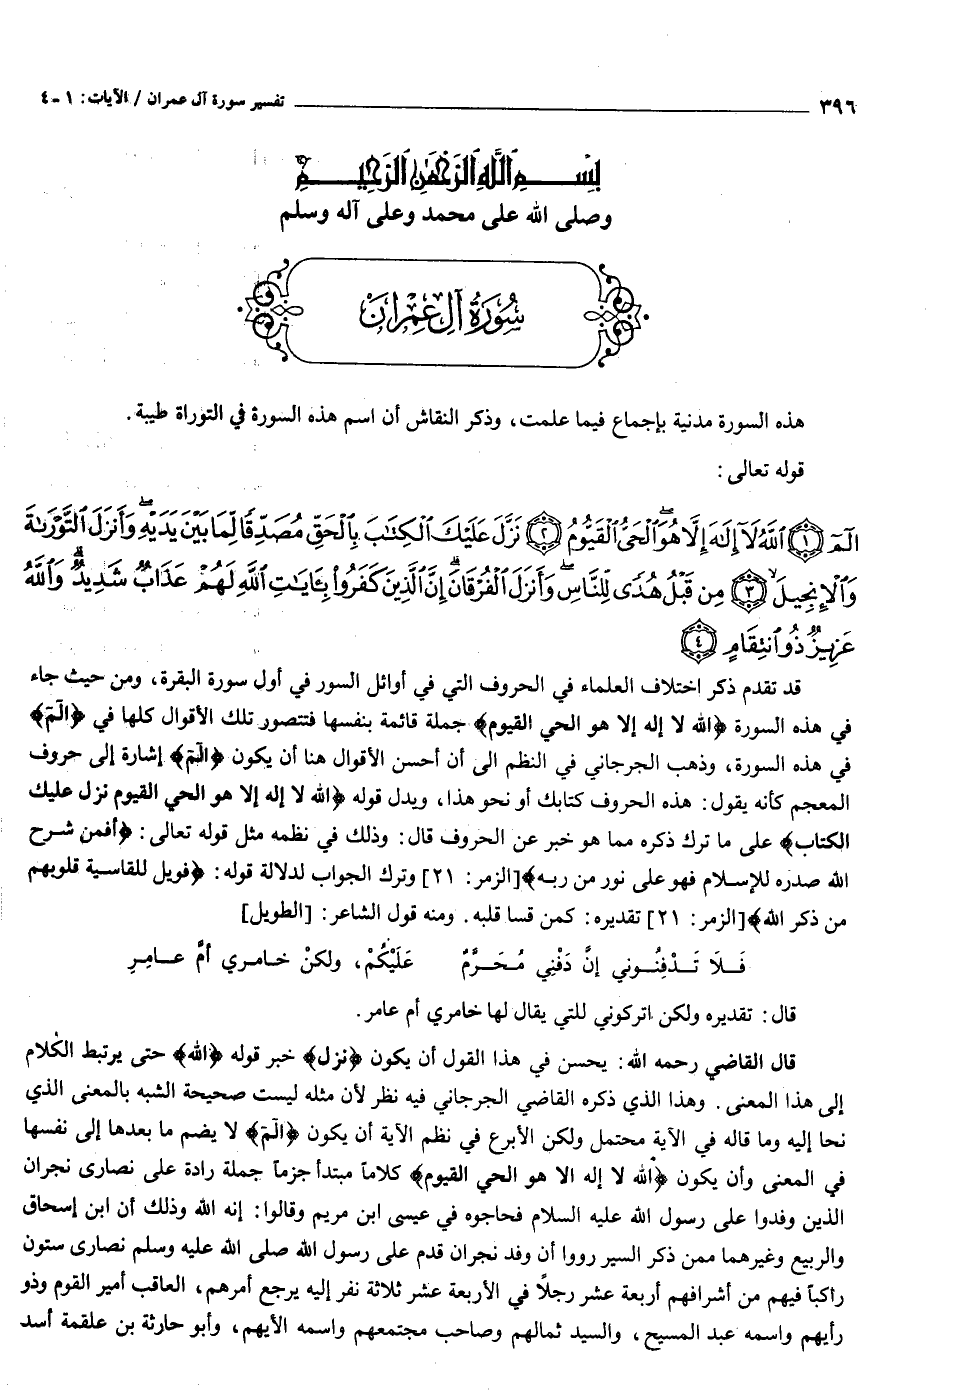 ٣٩٦ ـــــــ تفسير سورة آل عمران / الآيات: ١ - ٤
بِسْمِ ٱللَّهِ ٱلرَّحْمَٰنِ ٱلرَّحِيمِ
وصلى الله على محمد وعلى آله وسلم
سُورَةُ آلِ عِمْرَان
هذه السورة مدنية بإجماع فيما علمت، وذكر النقاش أن اسم هذه السورة في التوراة طيبة.
قوله تعالى:
الٓمٓ ﴿١﴾ ٱللَّهُ لَآ إِلَٰهَ إِلَّا هُوَ ٱلْحَىُّ ٱلْقَيُّومُ ﴿٢﴾ نَزَّلَ عَلَيْكَ ٱلْكِتَٰبَ بِٱلْحَقِّ مُصَدِّقًا لِّمَا بَيْنَ يَدَيْهِ وَأَنزَلَ ٱلتَّوْرَىٰةَ
وَٱلْإِنجِيلَ ﴿٣﴾ مِن قَبْلُ هُدًى لِّلنَّاسِ وَأَنزَلَ ٱلْفُرْقَانَ إِنَّ ٱلَّذِينَ كَفَرُوا۟ بِـَٔايَٰتِ ٱللَّهِ لَهُمْ عَذَابٌ شَدِيدٌ وَٱللَّهُ
عَزِيزٌ ذُو ٱنتِقَامٍ ﴿٤﴾
قد تقدم ذكر اختلاف العلماء في الحروف التي في أوائل السور في أول سورة البقرة، ومن حيث جاء
في هذه السورة ﴿الله لا إله إلا هو الحي القيوم﴾ جملة قائمة بنفسها فتتصور تلك الأقوال كلها في ﴿الٓمٓ﴾
في هذه السورة، وذهب الجرجاني في النظم الى أن أحسن الأقوال هنا أن يكون ﴿الٓمٓ﴾ إشارة إلى حروف
المعجم كأنه يقول: هذه الحروف كتابك أو نحو هذا، ويدل قوله ﴿الله لا إله إلا هو الحي القيوم نزل عليك
الكتاب﴾ على ما ترك ذكره مما هو خبر عن الحروف قال: وذلك في نظمه مثل قوله تعالى: ﴿أفمن شرح
الله صدره للإسلام فهو على نور من ربه﴾[الزمر: ٢١] وترك الجواب لدلالة قوله: ﴿فويل للقاسية قلوبهم
من ذكر الله﴾[الزمر: ٢١] تقديره: كمن قسا قلبه. ومنه قول الشاعر: [الطويل]
فَلَا تَدْفِنُوني إنَّ دَفْنِي مُحَرَّمٌ عَلَيْكُمْ، ولكنْ خامري أمَّ عامِرِ
قال: تقديره ولكن اتركوني للتي يقال لها خامري أم عامر.
قال القاضي رحمه الله: يحسن في هذا القول أن يكون ﴿نزل﴾ خبر قوله ﴿الله﴾ حتى يرتبط الكلام
إلى هذا المعنى. وهذا الذي ذكره القاضي الجرجاني فيه نظر لأن مثله ليست صحيحة الشبه بالمعنى الذي
نحا إليه وما قاله في الآية محتمل ولكن الأبرع في نظم الآية أن يكون ﴿الٓمٓ﴾ لا يضم ما بعدها إلى نفسها
في المعنى وأن يكون ﴿الله لا إله الا هو الحي القيوم﴾ كلاماً مبتدأ جزماً جملة رادة على نصارى نجران
الذين وفدوا على رسول الله عليه السلام فحاجوه في عيسى ابن مريم وقالوا: إنه الله وذلك أن ابن إسحاق
والربيع وغيرهما ممن ذكر السير رووا أن وفد نجران قدم على رسول الله صلى الله عليه وسلم نصارى ستون
راكباً فيهم من أشرافهم أربعة عشر رجلاً في الأربعة عشر ثلاثة نفر إليه يرجع أمرهم، العاقب أمير القوم وذو
رأيهم واسمه عبد المسيح، والسيد ثمالهم وصاحب مجتمعهم واسمه الأيهم، وأبو حارثة بن علقمة أسد